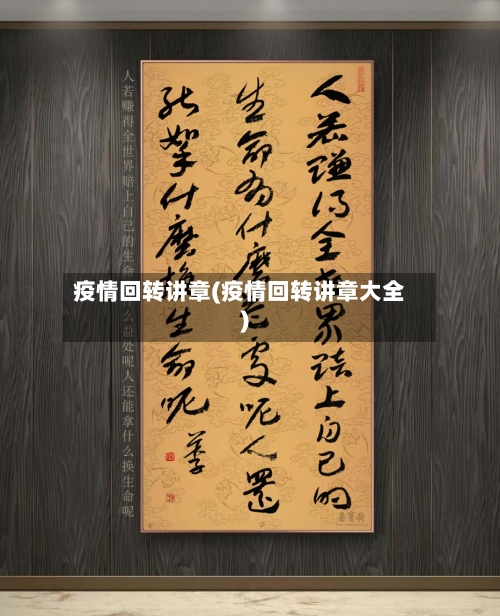 疫情回转讲章(疫情回转讲章大全
)
人若赚得全世界赔上自己的
生命为什麼益处呢人还
能拿什麼换生命呢
人若赚得全世界赔上自己的生命
么益处呢人还能拿什么换生命呢